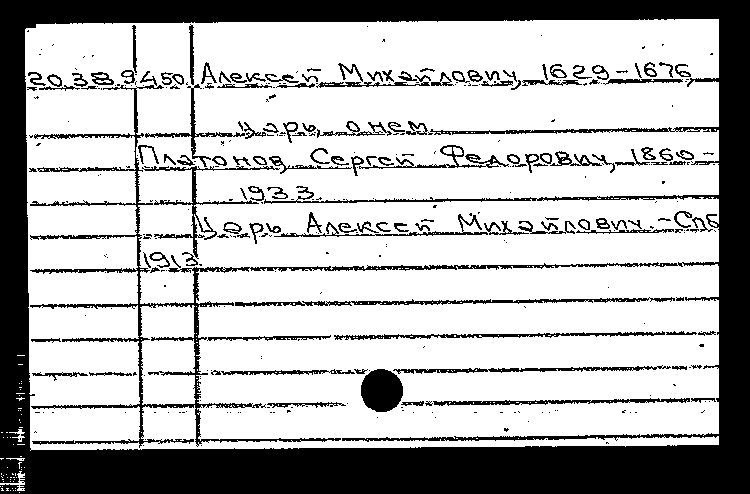 20.38.9.450. Алексей Михайлович, 1629-1676,
царь, о нем.
Платонов, Сергей Федорович, 1860-
1933.
Царь Алексей Михайлович. -Спб
1913.